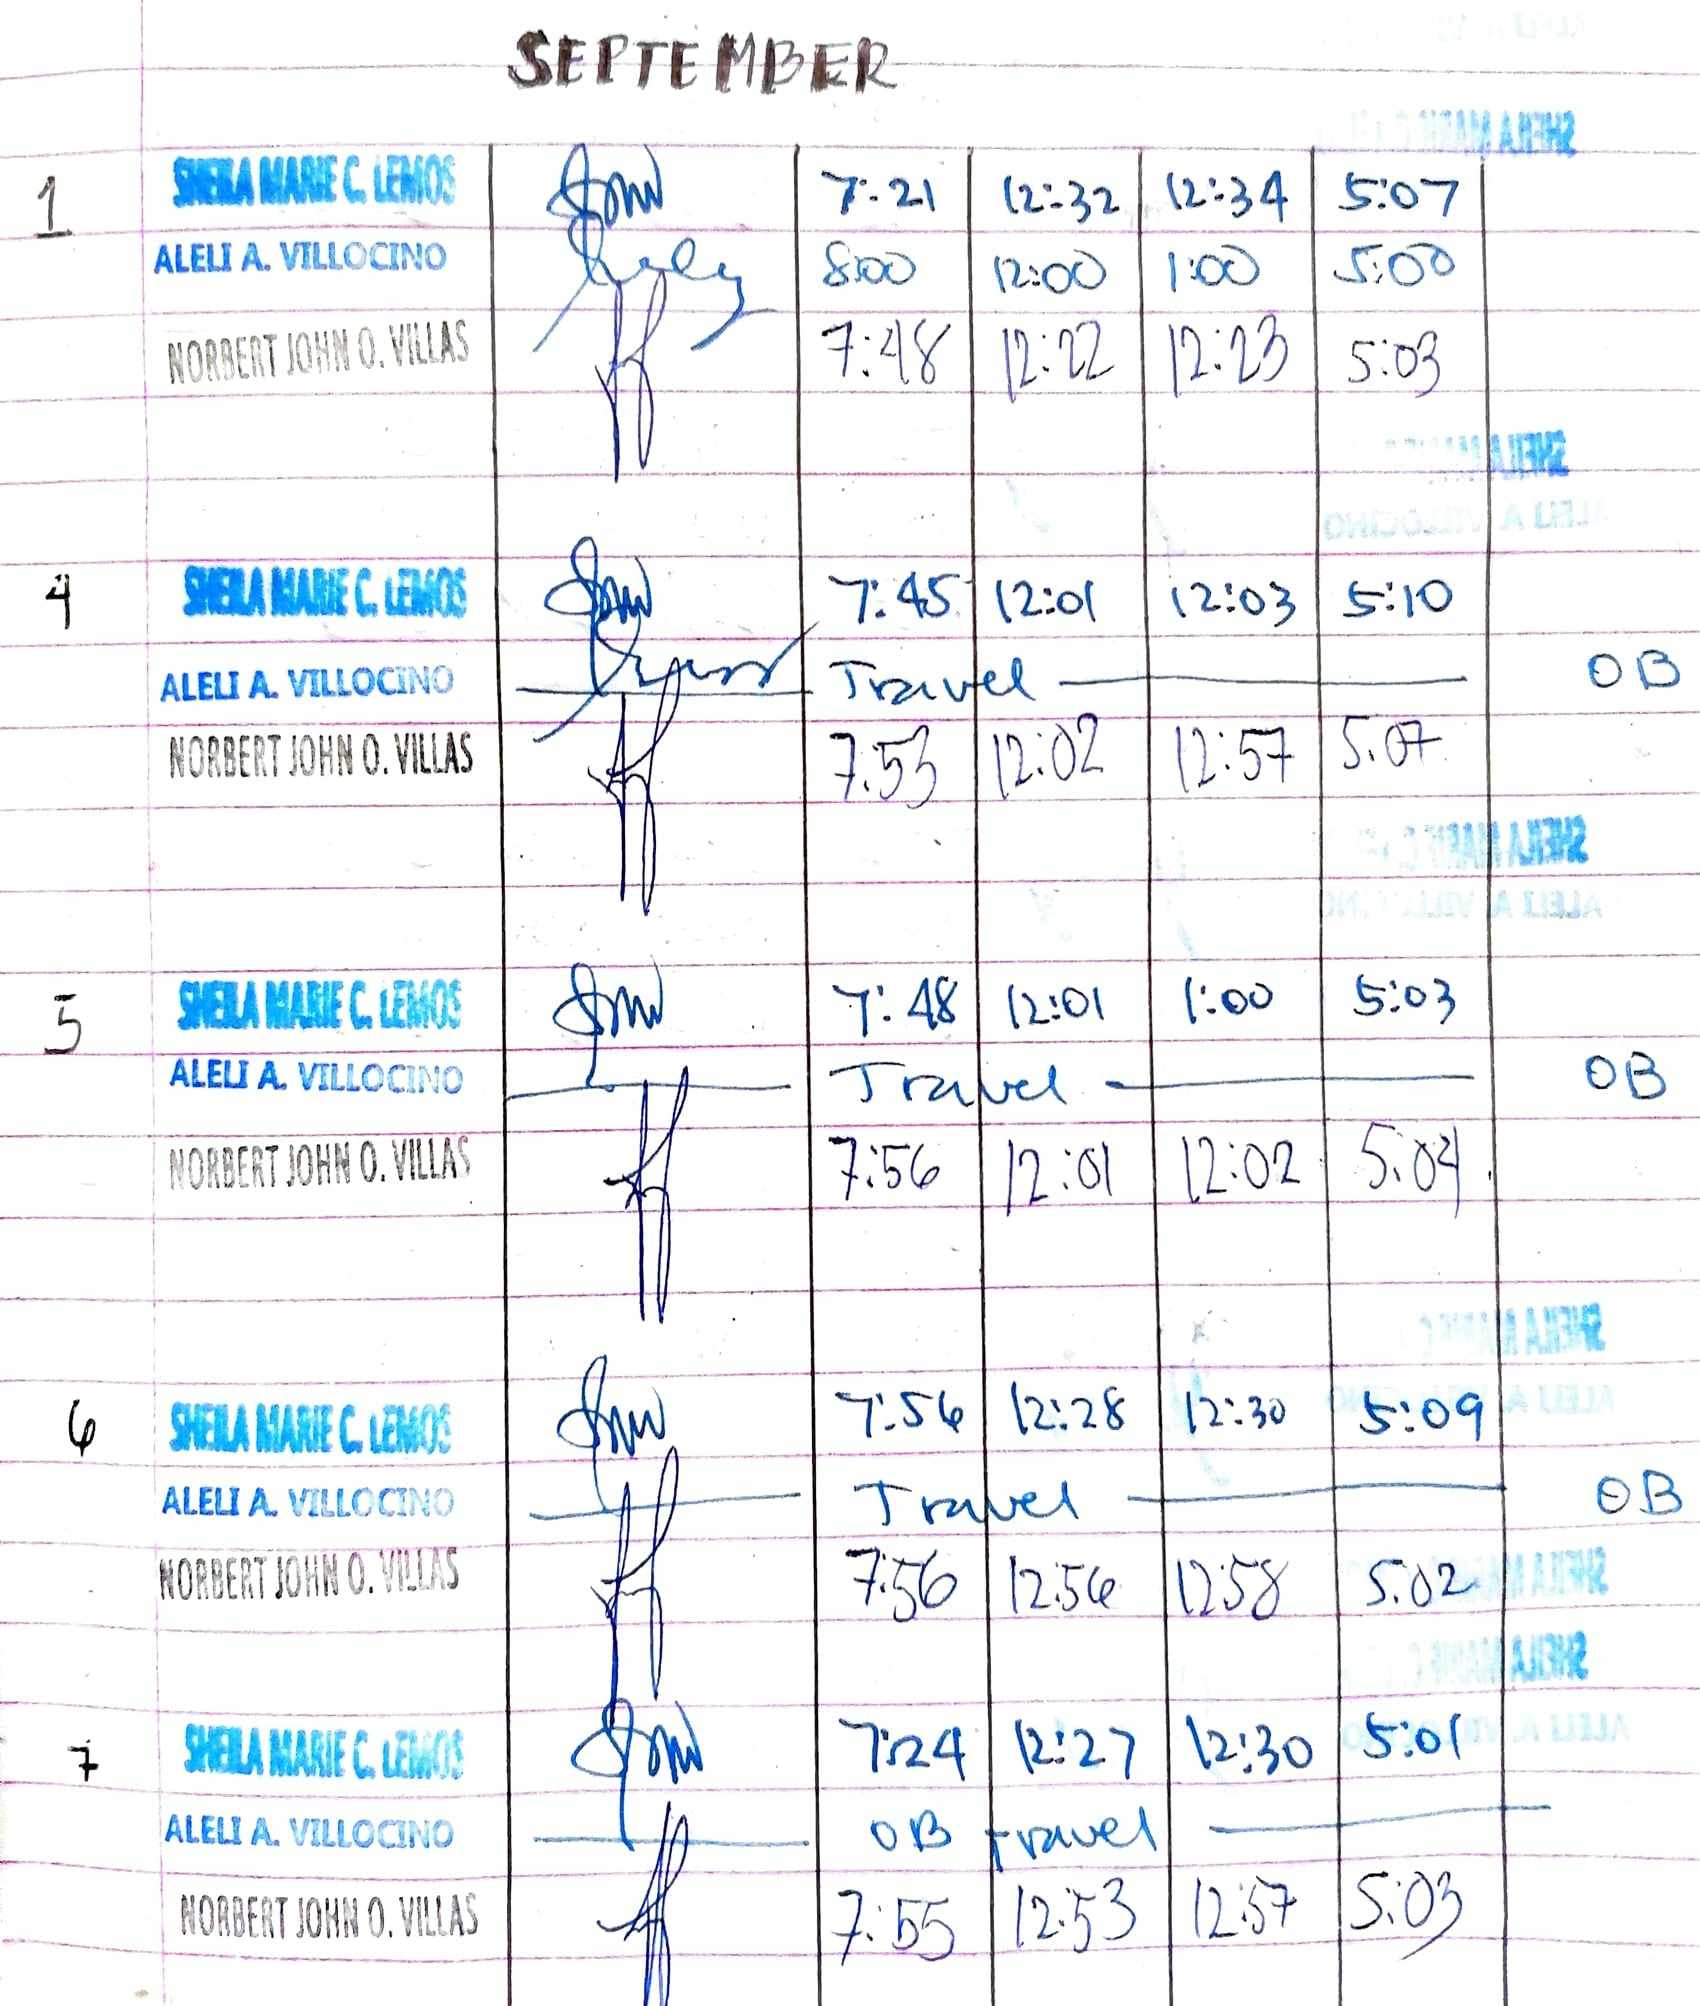 SEPTEMBER
1 SHEILA MARIE C. LEMOS 7:21 12:32 12:34 5:07
ALELI A. VILLOCINO 8:00 12:00 1:00 5:00
NORBERT JOHN O. VILLAS 7:48 12:22 12:23 5:03
4 SHEILA MARIE C. LEMOS 7:45 12:01 12:03 5:10
ALELI A. VILLOCINO Travel OB
NORBERT JOHN O. VILLAS 7:53 12:02 12:57 5:07
5 SHEILA MARIE C. LEMOS 7:48 12:01 1:00 5:03
ALELI A. VILLOCINO Travel OB
NORBERT JOHN O. VILLAS 7:56 12:01 12:02 5:04
6 SHEILA MARIE C. LEMOS 7:56 12:28 12:30 5:09
ALELI A. VILLOCINO Travel OB
NORBERT JOHN O. VILLAS 7:56 12:56 12:58 5:02
7 SHEILA MARIE C. LEMOS 7:24 12:27 12:30 5:01
ALELI A. VILLOCINO OB travel
NORBERT JOHN O. VILLAS 7:55 12:53 12:57 5:03